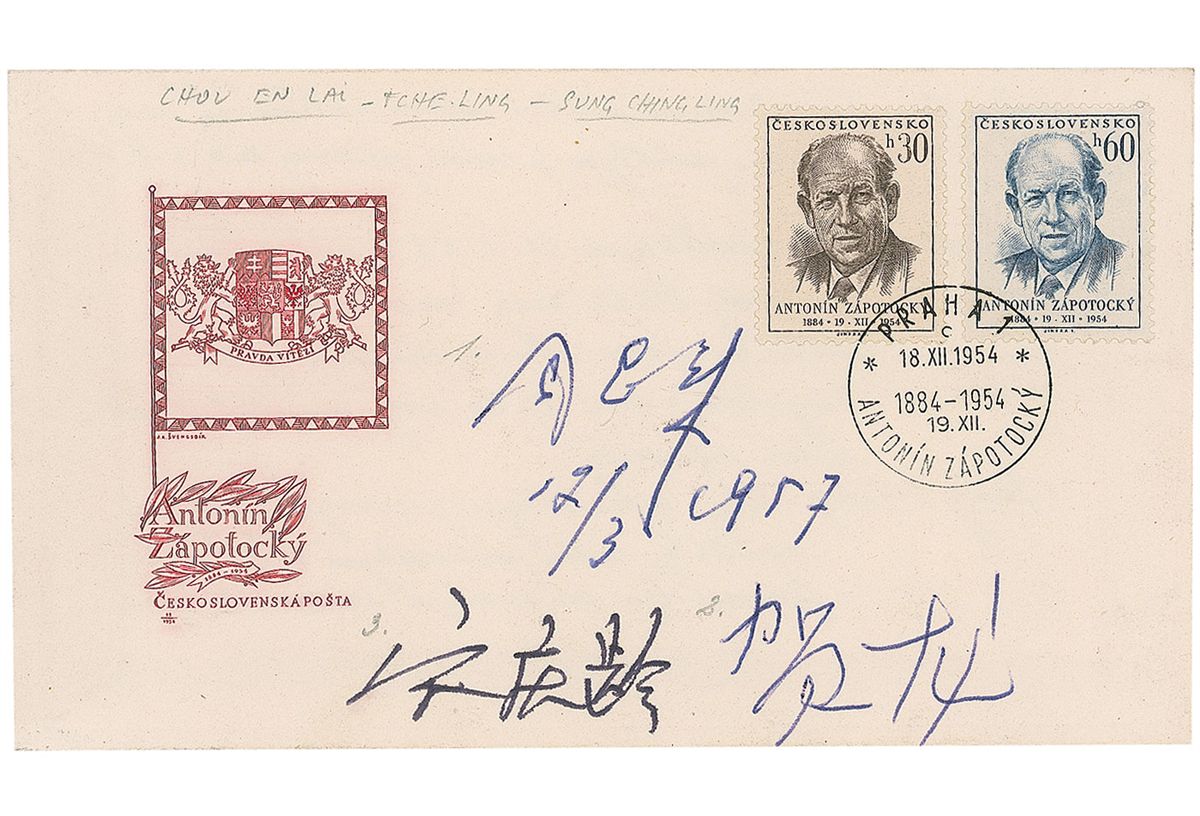 CHOU EN LAI - TCHE.LING - SUNG CHING LING
ČESKOSLOVENSKO
h 30
ANTONÍN ZÁPOTOCKÝ
1884 • 19 • XII • 1954
ČESKOSLOVENSKO
h 60
ANTONÍN ZÁPOTOCKÝ
1884 • 19 • XII • 1954
PRAHA 1
C
* 18.XII.1954 *
1884-1954
19.XII.
ANTONÍN ZÁPOTOCKÝ
PRAVDA VÍTĚZÍ
J.A. ŠVENGSBÍR
Antonín
Zápotocký
1884-1954
ČESKOSLOVENSKÁ POŠTA
1.
周恩来
12/3 1957
3.
宋庆龄
2.
贺龙